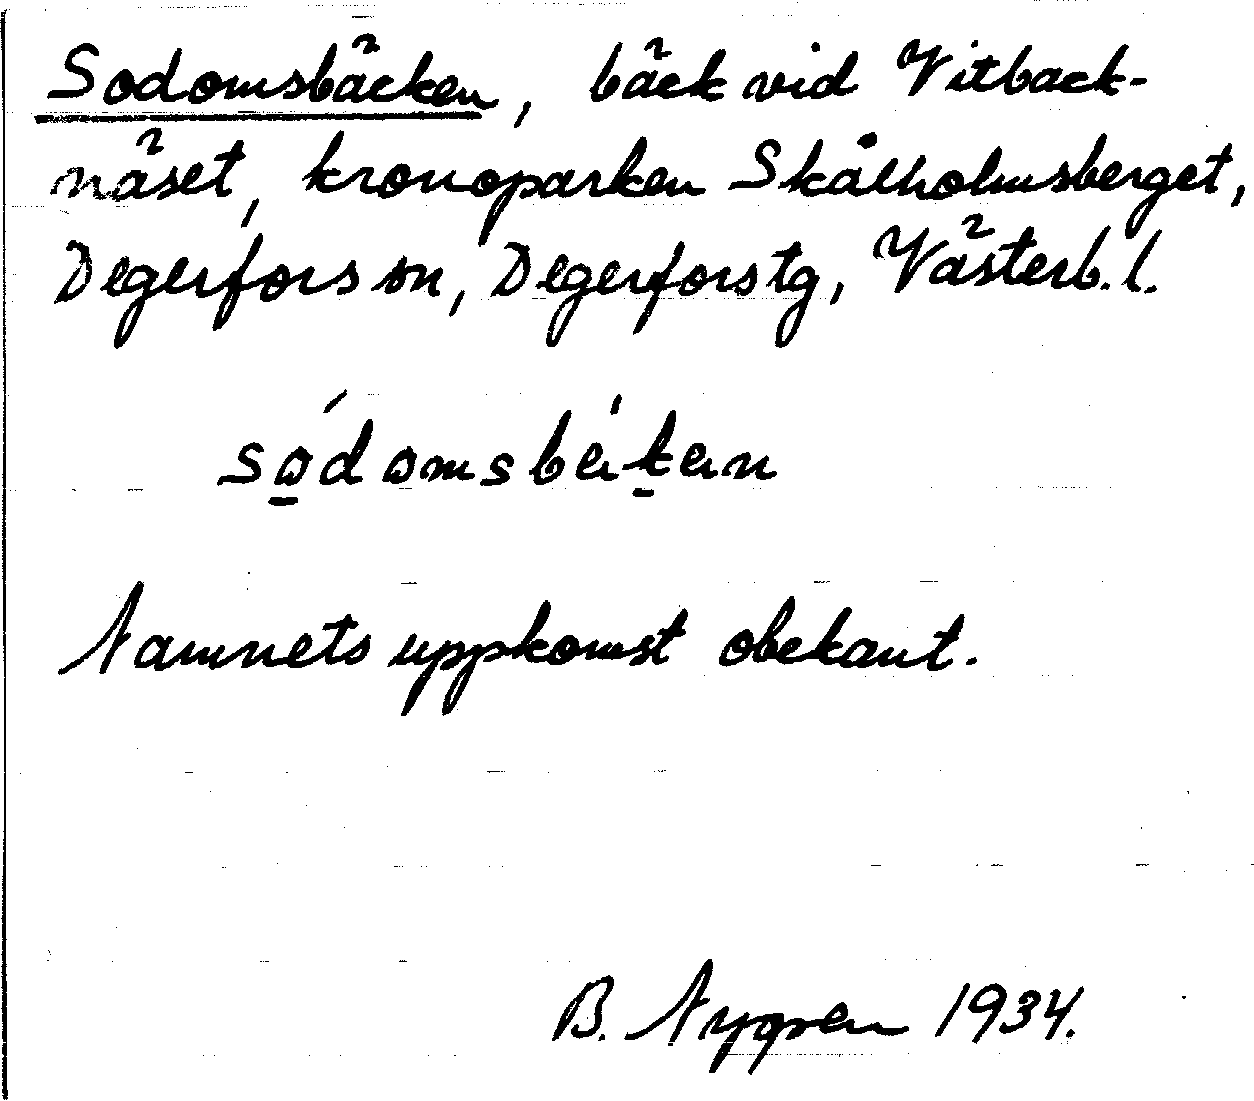 Sodomsbäcken, bäck vid Vitback-
näset, kronoparken Skålholmsberget,
Degerfors sn, Degerfors tg, Västerb. l.
so̱domsbek̠en
Namnets uppkomst obekant.
B. Nygren 1934.